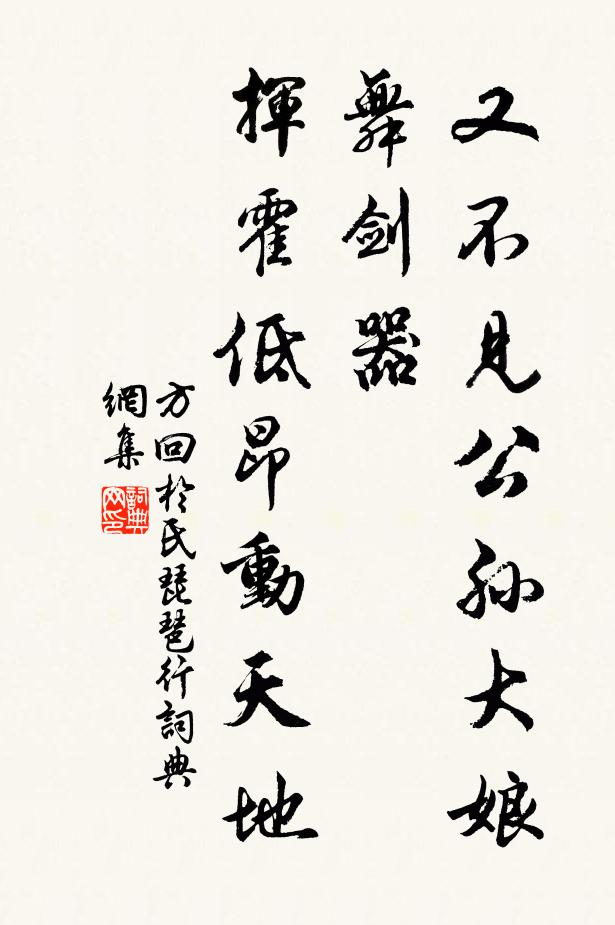 又不見公孫大娘
舞劍器
揮霍低昂動天地
方回於氏琵琶行詞典
網集
詞典
网印